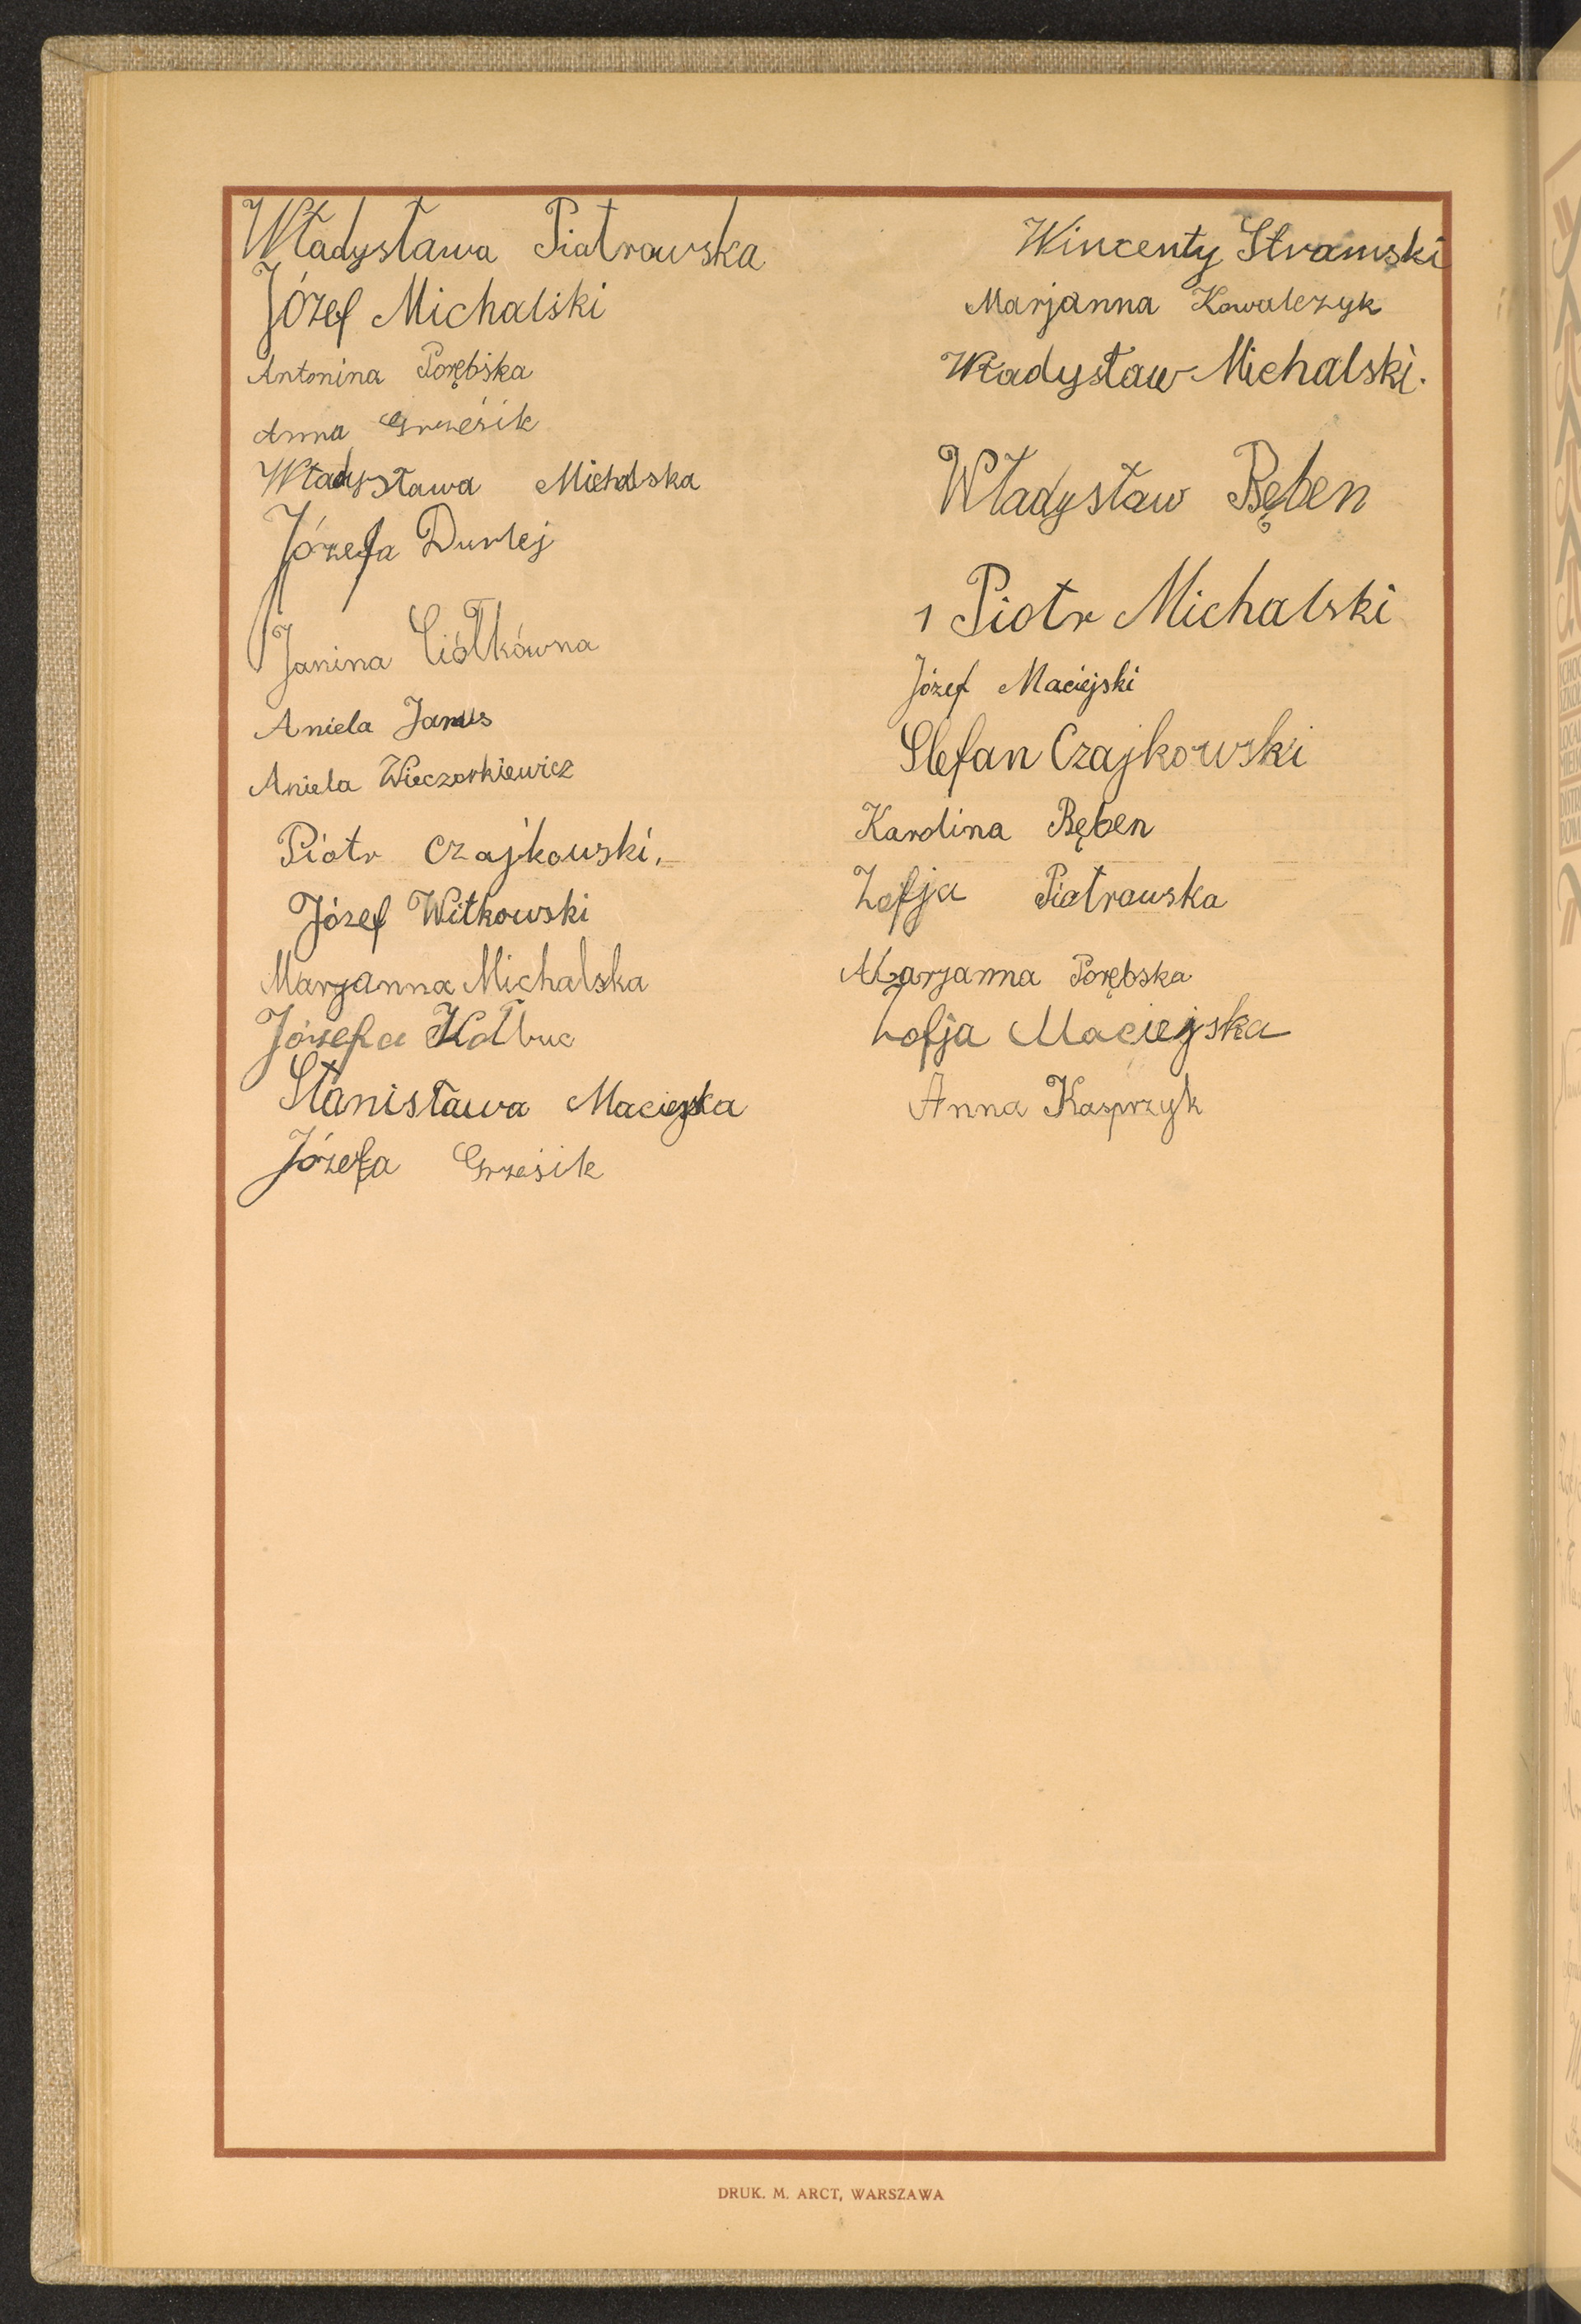 Władysława Piotrowska
Józef Michalski
Antonina Porębska
Anna Grześik
Władysława Michalska
Józefa Durlej
Janina Ciółkówna
Aniela Janus
Aniela Wieczorkiewicz
Piotr Czajkowski.
Józef Witkowski
Marjanna Michalska
Józefa Kołbuc
Stanisława Maciejska
Józefa Grzesik
Wincenty Stramski
Marjanna Kowalczyk
Władysław Michalski.
Władysław Bęben
1 Piotr Michalski
Józef Maciejski
Stefan Czajkowski
Karolina Bęben
Zofja Piotrowska
Marjanna Porębska
Zofja Maciejska
Anna Kasprzyk
DRUK. M. ARCT, WARSZAWA